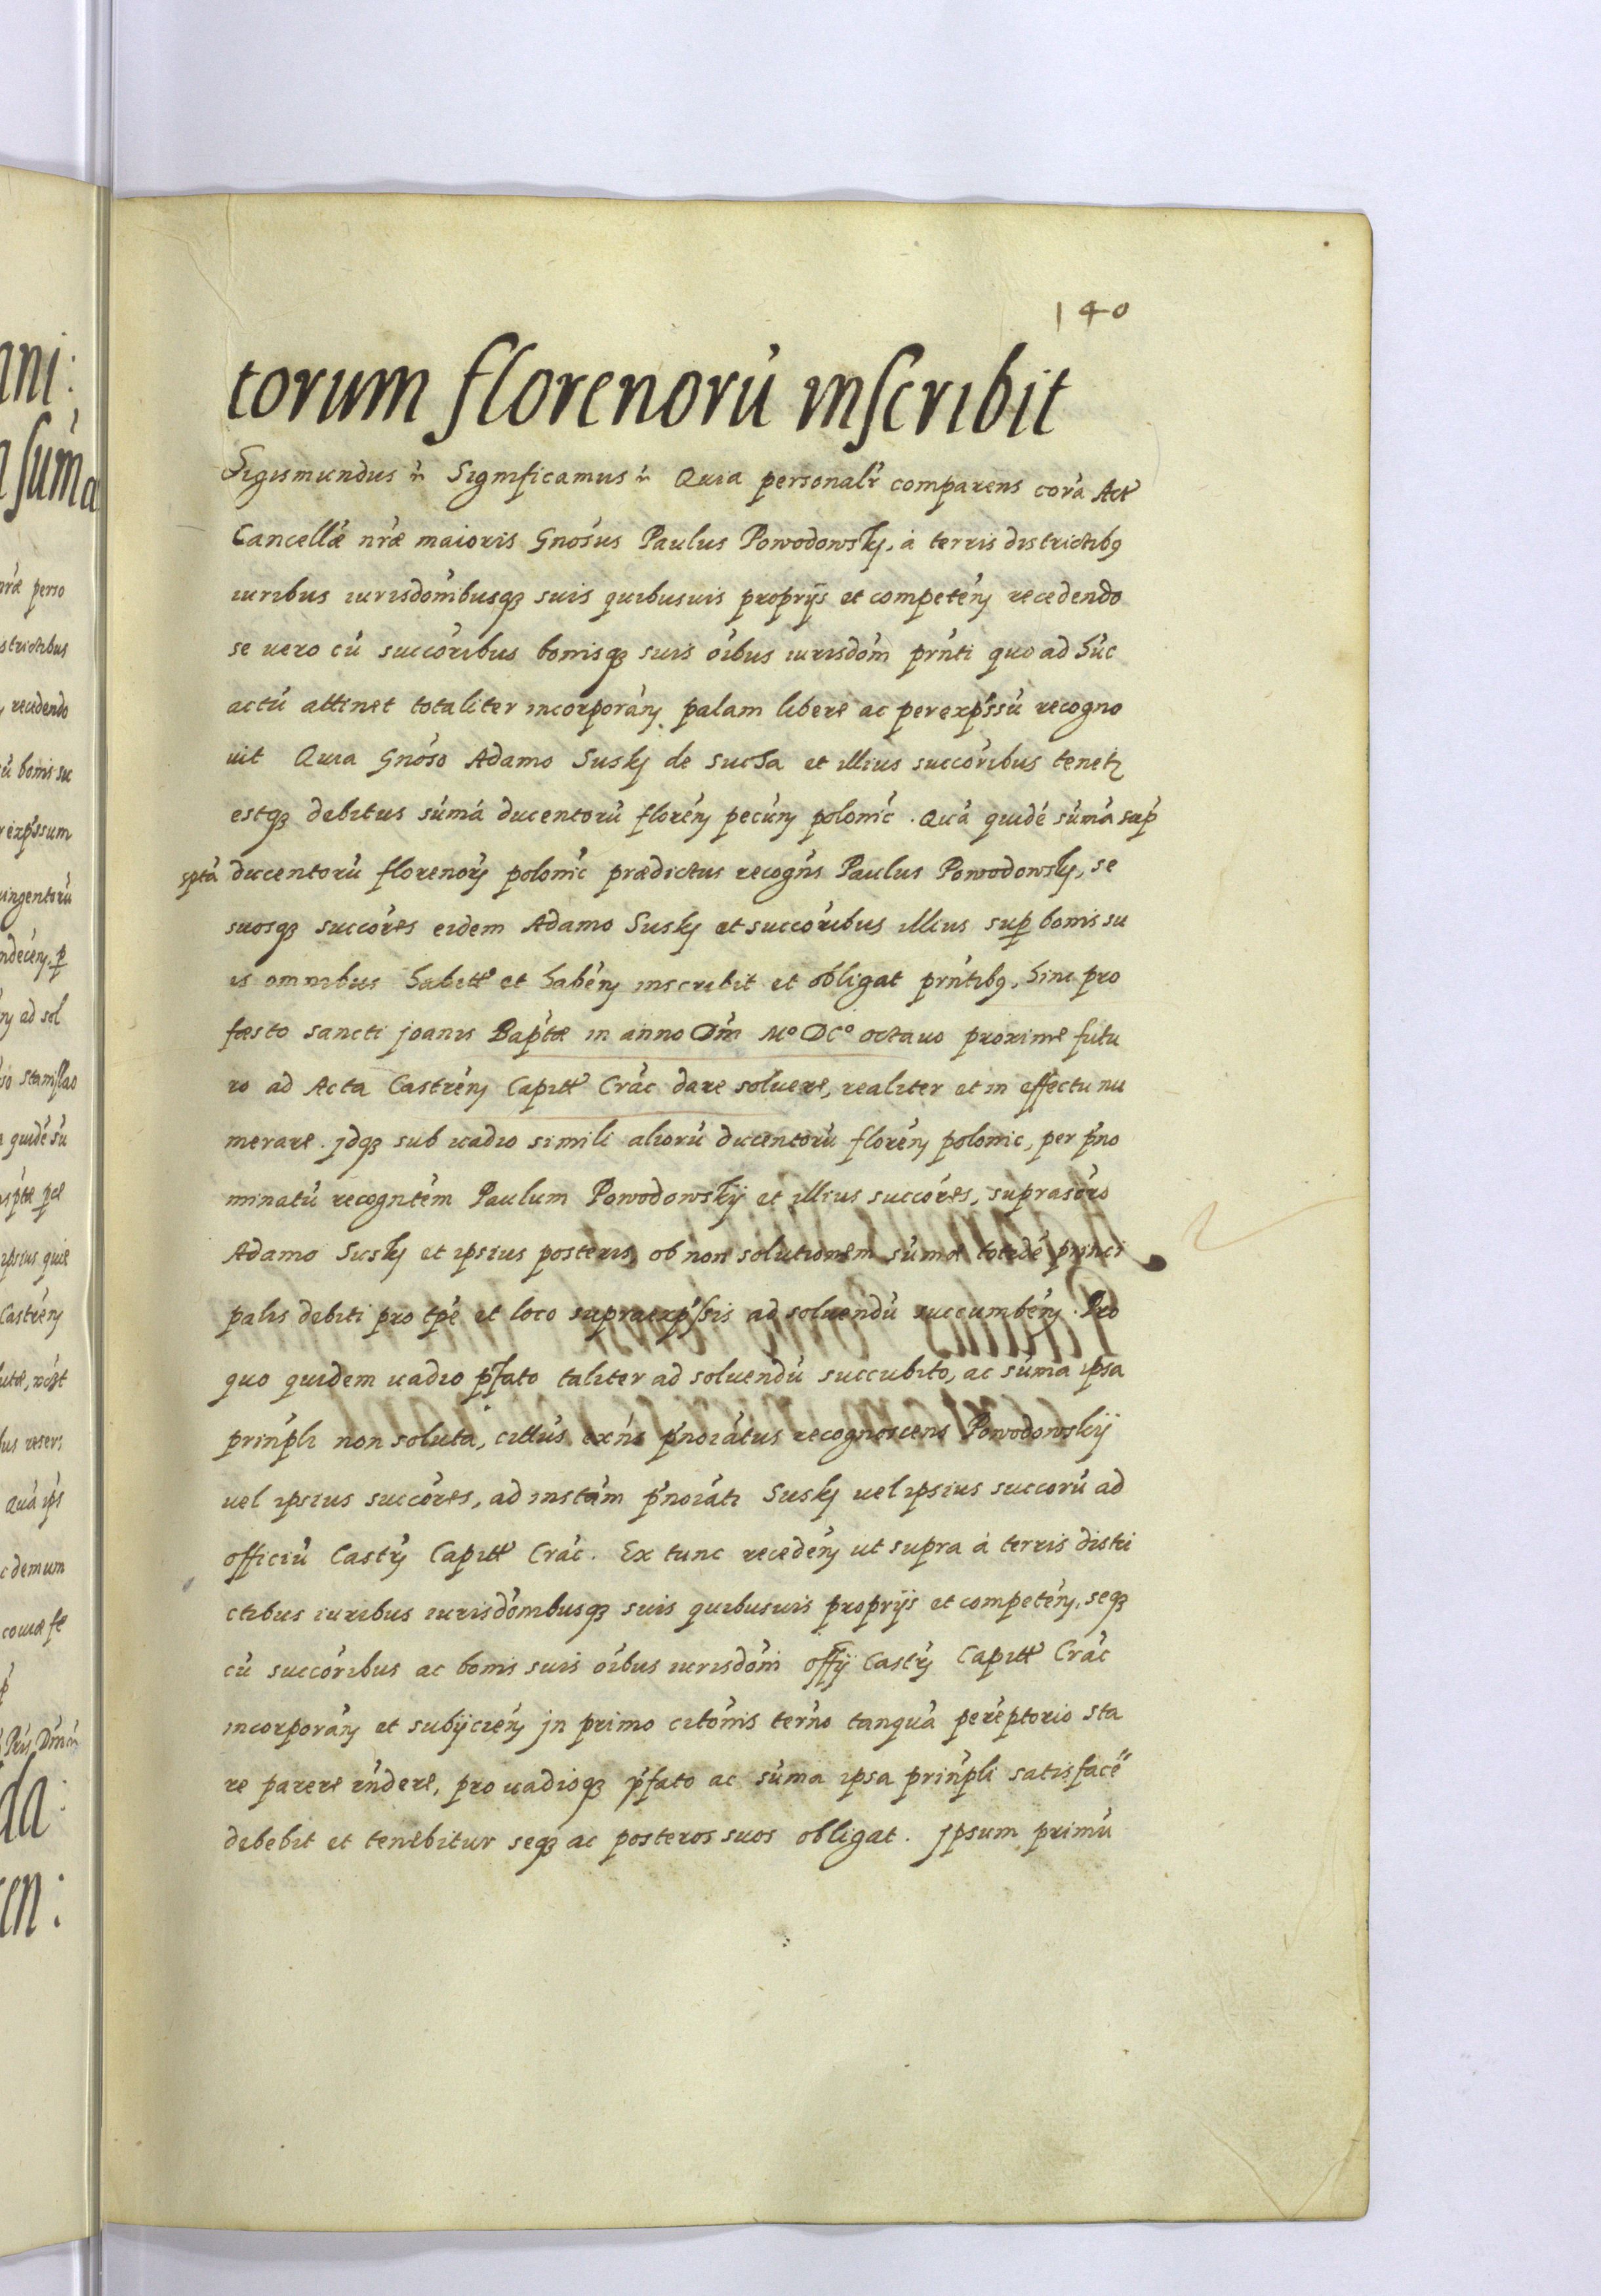 140
torum florenorú inscribit
Sigismundus Significamus Quia personalr comparens corá Act
Cancellǽ nrǽ maioris Gnosus Paulus Powodowskj, á terris districtibq
iuribus iurisdombusqȝ suis quibusuis proprijs et competeń recedendo
se uero cú succoribus bonisqȝ suis oibus iurisdom prnti quo ad húc
actú attinet totaliter incorporań palam libere ac perexpssú recogno
uit Quia Gnoso Adamo Suskj de sucha et illius succoribus tenetꝛ
estqȝ debitus súmá ducentorú floreń pecuń polonic. Quá quidé súmá sup
spta ducentorú florenorꝝ polonic prædictus recogns Paulus Powodowskj, se
suosqȝ succores eidem Adamo Suskj et succoribus illius sup bonis su
is omnibus habitt et habeń inscribit et obligat prntibq, hinc pro
fæsto sancti joanis Baptæ in anno Dm Mº DCº octauo proxime futu
ro ad Acta Castreń Capitt Crac dare soluere, realiter et in effectu nu
merare. jdqȝ sub uadio simili aliorú ducentorú floreń polonic, per pno
minatú recogntem Paulum Powodowskij et illius succores, suprascro
Adamo Suskj et ipsius posteris, ob non solutionem súmæ totidé princi
palis debiti pro tpe et loco supraexpssis ad soluendú succumbeń. Pro
quo quidem uadio pfato taliter ad soluendú succubito, ac súma ipsa
prinpli non soluta, cittus exns pnoiatus recognoscens Powodowskij
uel ipsius succores, ad instam pnoiati Suskj uel ipsius succorú ad
officiú Castrꝝ Capitt Crac. Ex tunc recedeń ut supra á terris distri
ctibus iuribus iurisdombusqȝ suis quibusuis proprijs et competeń, seqȝ
cú succoribus ac bonis suis oibus iurisdoni offij Castrꝝ Capitt Crac
incorporań et subijcień jn primo citonis terno tanquá peréptorio sta
re parere rndere, pro uadioqȝ pfato ac súma ipsa prinpli satisface
debebit et tenebitur seqȝ ac posteros suos obligat. Jpsum primú